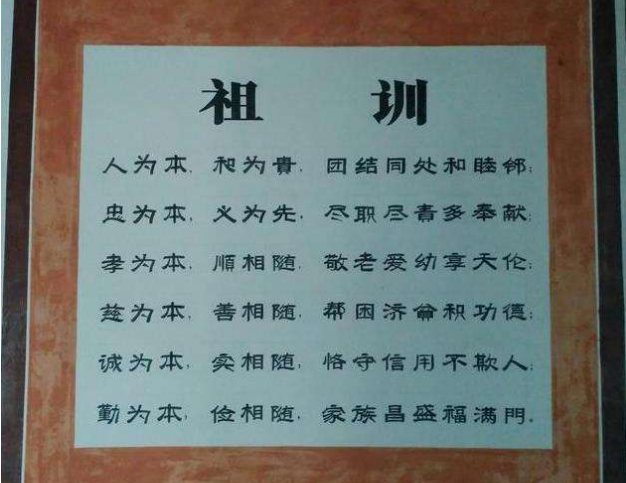 祖 训
人为本，和为貴，团结同处和睦邻；
忠为本，义为先，尽职尽责多奉献；
孝为本，順相随，敬老爱幼享天伦；
慈为本，善相随，帮困济贫积功德；
诚为本，实相随，恪守信用不欺人；
勤为本，俭相随，家族昌盛福满門。